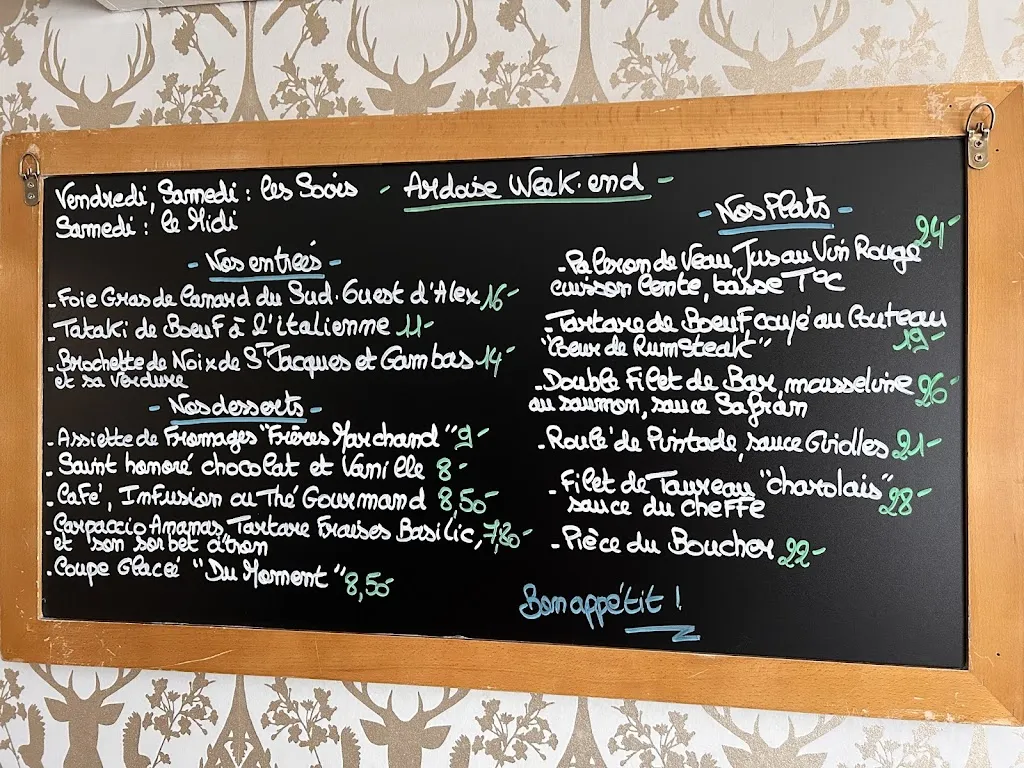 Vendredi, Samedi : les Soirs
Samedi : le Midi
- Ardoise Week-end -
- Nos entrées -
- Foie Gras de Canard du Sud-Ouest d'Alex 16-
- Tataki de Boeuf à l'italienne 11-
- Brochette de Noix de St Jacques et Gambas 14-
et sa verdure
- Nos desserts -
- Assiette de Fromages "Frères Marchand" 9-
- Saint honoré chocolat et Vanille 8-
- Café, Infusion ou Thé Gourmand 8,50-
- Carpaccio Ananas, Tartare Fraises Basilic, 7,80-
et son sorbet citron
- Coupe Glacée "Du Moment" 8,50-
- Nos Plats -
- Paleron de Veau, Jus au Vin Rouge 24-
cuisson lente, basse T°C
- Tartare de Boeuf coupé au Couteau
"Coeur de RumSteak" 19-
- Double Filet de Bar, mousseline 26-
au saumon, sauce Safran
- Roulé de Pintade, sauce Griolles 21-
- Filet de Taureau "charolais" 28-
sauce du cheffe
- Pièce du Boucher 22-
Bon appétit !